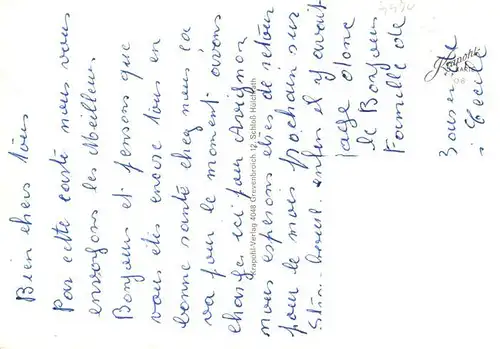 Bien chers tous
Par cette carte nous vous
envoyons les Meilleurs
Bonjours et pensons que
vous êtes encore tous en
bonne santé chez nous ça
va pour le moment avons
change ici pour Avrignon
nous esperons etres de retour
pour le mois prochain sur
enfin il y aurait
large donc
le Bonjour
Famille de
Cecile
Krapohl-Verlag 4048 Grevenbroich 12, Schloß Hülchrath